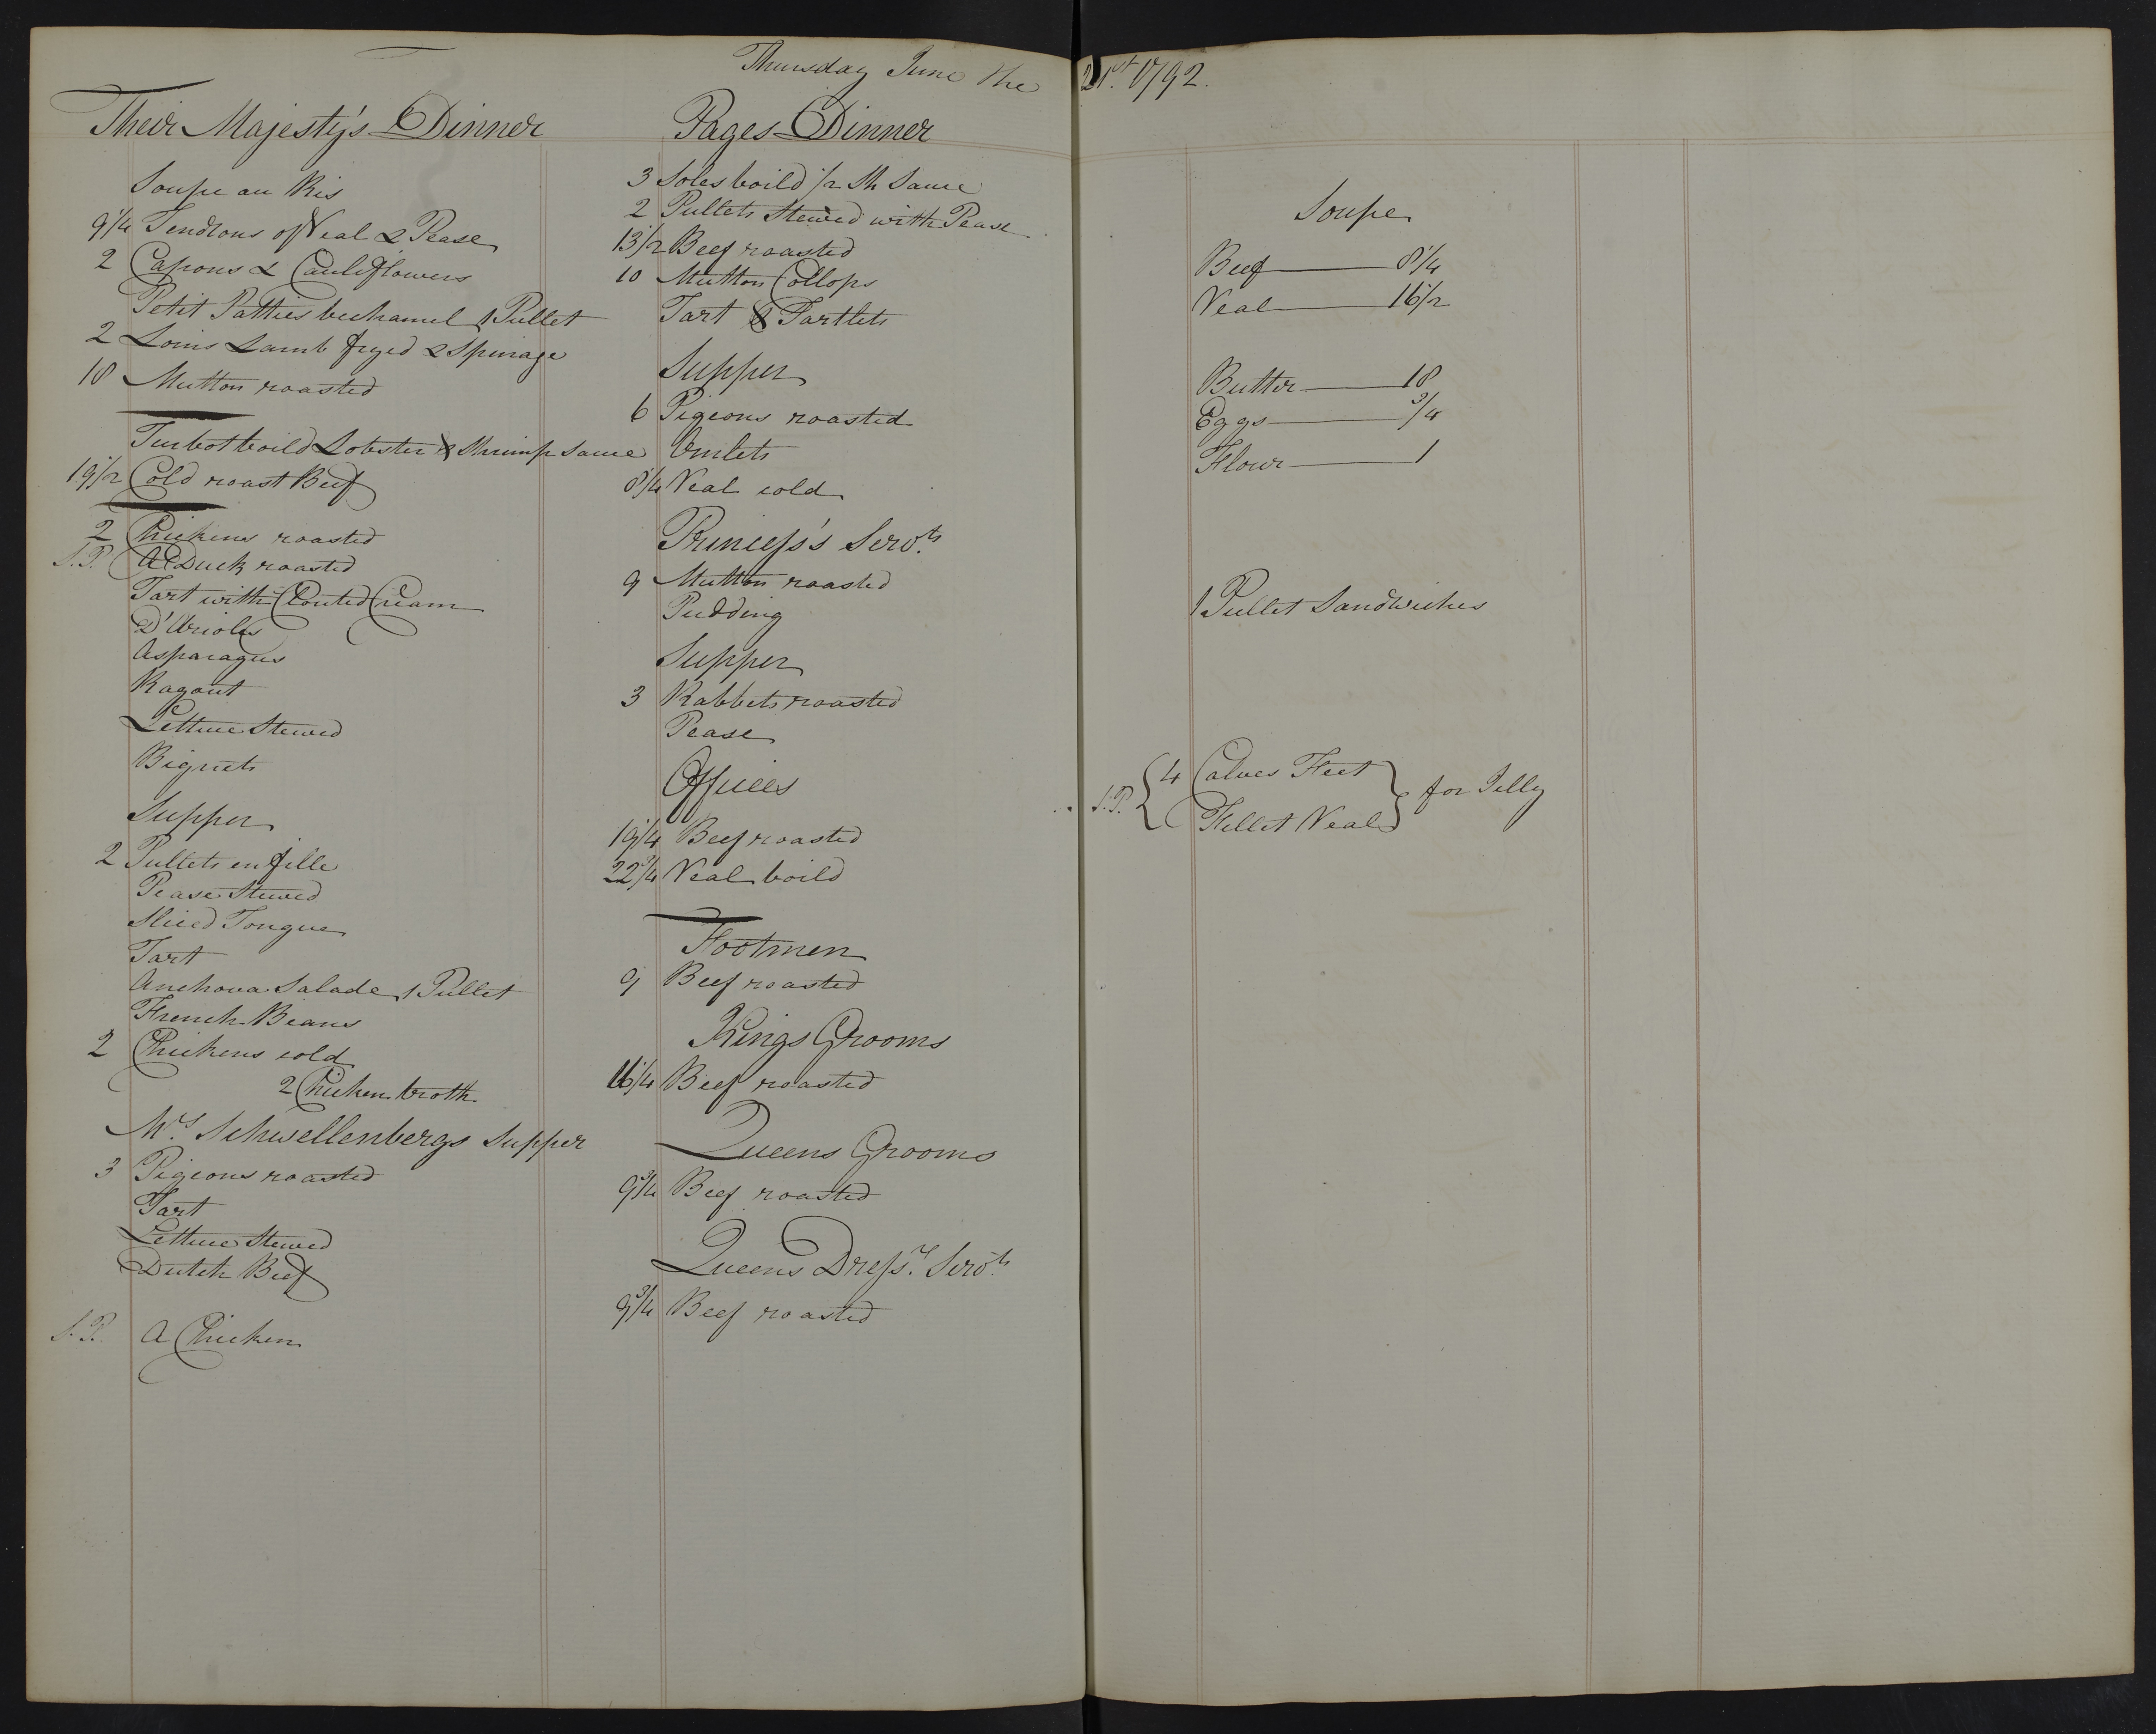 Thursday June the 21st. 1792.
Their Majesty's Dinner
Soupe au Ris
9 1/4 Tendrons of Veal & Pease
2 Capons & Cauliflowers
Petit Patties bechamel 1 Pullet
2 Loins Lamb fryed & Spinage
18 Mutton roasted
Turbot boild Lobster & Shrimp Sauce
19 1/2 Cold roast Beef
2 Chickens roasted
S.P. A Duck roasted
Tart with Clouted Cream
D'Arioles
Asparagus
Ragout
Lettuce Stewed
Bignets
Supper
2 Pullets en fille
Pease Stewed
Sliced Tongue
Tart
Anchova Salade 1 Pullet
French Beans
2 Chickens cold
2 Chicken broth
Mrs. Schwellenbergs Supper
3 Pigeons roasted
Tart
Lettuce Stewed
Dutch Beef
S.P. A Chicken
Pages Dinner
3 Soles boild 1/2 Sh Sauce
2 Pullets Stewed with Pease
13 1/2 Beef roasted
10 Mutton Collops
Tart & Tartlets
Supper
6 Pigeons roasted
Omlets
8 1/4 Veal cold
Princess's Servts
9 Mutton roasted
Pudding
Supper
3 Rabbets roasted
Pease
Offices
19 1/4 Beef roasted
22 3/4 Veal boild
Footmen
9 Beef roasted
Kings Grooms
16 1/4 Beef roasted
Queens Grooms
9 3/4 Beef roasted
Queens Dressrs. Servts
9 3/4 Beef roasted
Soupe
Beef 8 1/4
Veal 16 1/2
Butter 18
Eggs 3/4
Flour 1
1 Pullet Sandwiches
S.P. { 4 Calves Feet
Fillet Veal } for Jelly